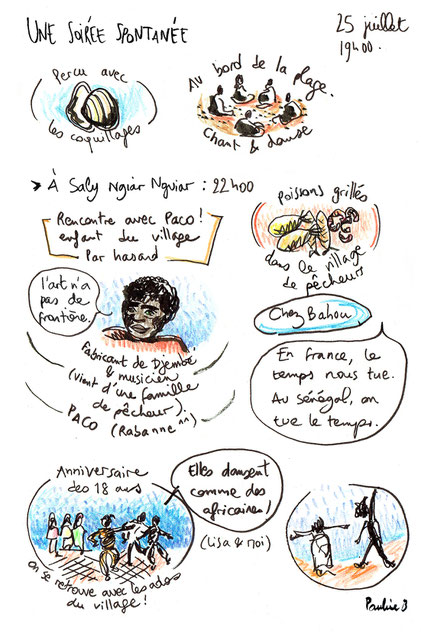 UNE SOIRÉE SPONTANÉE
25 juillet
19h00.
Perçu avec
les coquillages
Au bord de la plage.
Chant & danse
> À Saly Ngiar Nguiar : 22h00
Rencontre avec Paco !
enfant du village
Par hasard
Poissons grillés
dans le village
de pêcheurs
l'art n'a
pas de
frontière.
Fabricant de Djembé
& musicien
(vient d'une famille
de pêcheur).
PACO (Rabanne ^^)
Chez Bahou
En France, le
temps nous tue.
Au Sénégal, on
tue le temps.
Anniversaire
des 18 ans
on se retrouve avec les ados
du village !
Elles dansent
comme des
africaines !
(Lisa & moi)
Pauline B